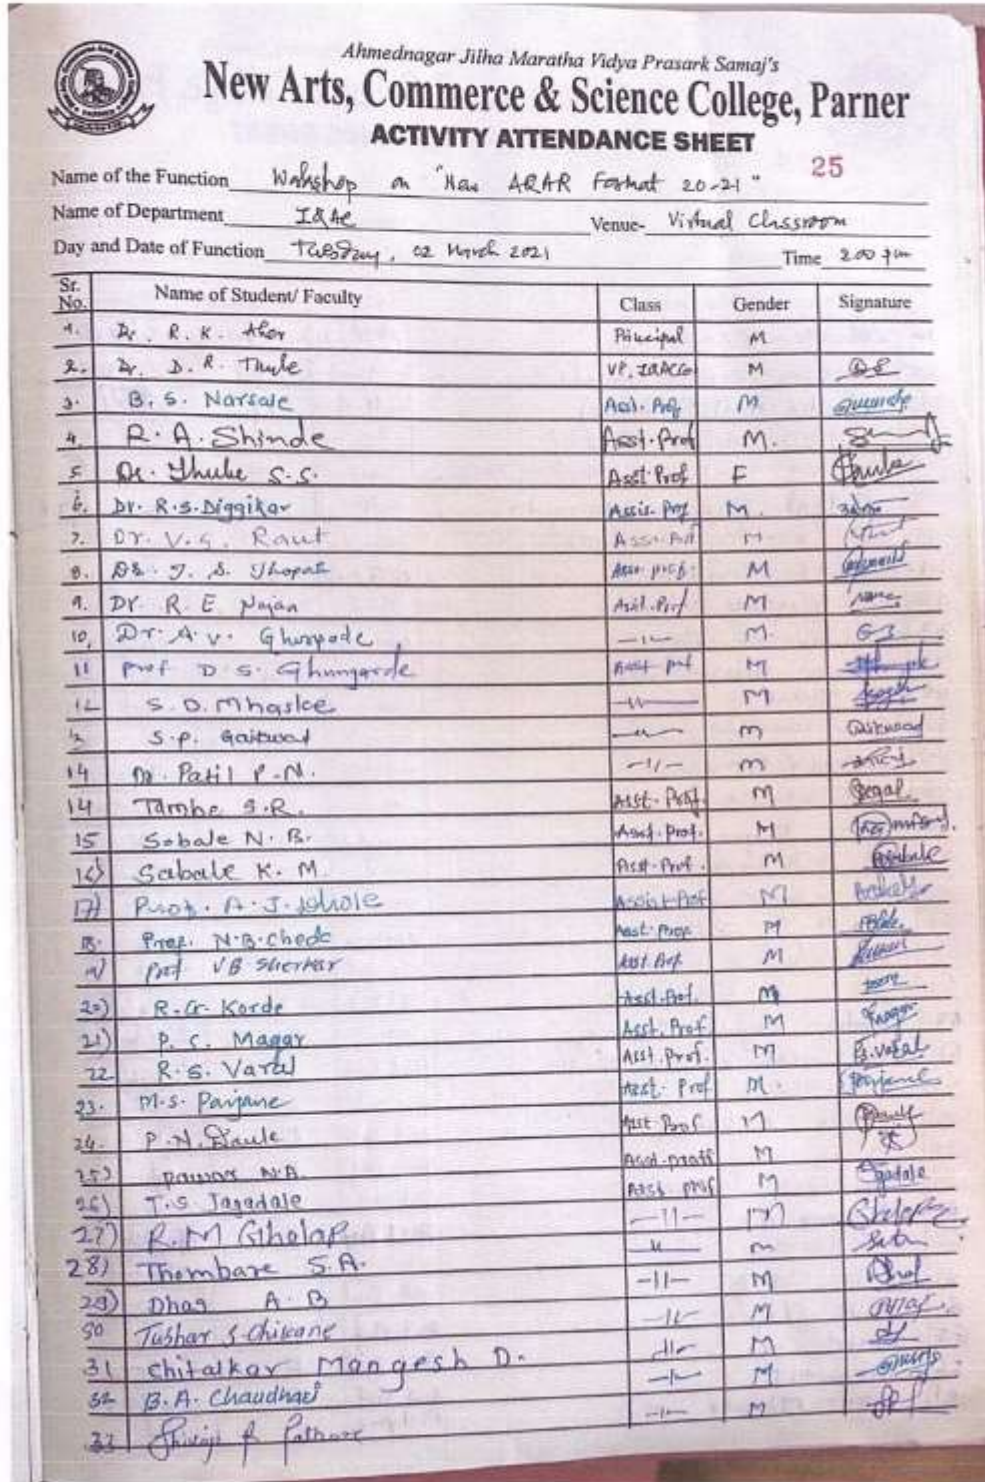 Ahmednagar Jilha Maratha Vidya Prasark Samaj's
New Arts, Commerce & Science College, Parner
ACTIVITY ATTENDANCE SHEET
25
Name of the Function Workshop on "New AQAR Format 20-21"
Name of Department IQAC Venue- Virtual Classroom
Day and Date of Function Tuesday, 02 March 2021 Time 2.00 pm
Sr. No. Name of Student/ Faculty Class Gender Signature
1. Dr. R. K. Aher Principal M
2. Dr. D. R. Thube VP, IQACC M
3. B. S. Narsale Asst. Prof M
4. R. A. Shinde Asst. Prof M.
5 Dr. Thube S.S. Asst Prof F
6. Dr. R.S. Diggikar Assis. Prof M.
7. Dr. V.G. Raut Asst. Prof M
8. Dr. J. S. Asst. Prof. M
9. Dr. R. E. Najan Asst. Prof M
10, Dr. A. V. Ghorpade -||- M.
11 Prof D S. Ghungarde Asst prof M
12 S. D. Mhaske -||- M
13 S.P. Gaikwad -||- M Gaikwad
14 Dr. Patil P.N. -||- M
14 Tambe S.R. Asst. Prof. M
15 Sobale N. B. Asst. prof. M
16) Sabale K. M. Asst. Prof. M
17) Prof. A. J. Dhole Assist. Prof M
18. Prof. N.B. Chede Asst. Prof M
Prof VB Sherkar Asst. Prof M
20) R.G. Korde Asst. Prof. M
21) P. C. Magar Asst. Prof M Magar
22 R. S. Varal Asst. Prof. M R.S. Varal
23. M.S. Parjane Asst. Prof M. Parjane
24. P. N. Daule Asst Prof M
25) Pawar N.A. Asst. proff M
26) T.S Jagadale Asst prof M Jagadale
27) R.M Gholap -||- M Gholap
28) Thombare S.A. -||- M
29) Dhas A. B -||- M
30 Tushar S. Chikane -||- M
31 Chitalkar Mangesh D. -||- M
32 B.A. Chaudhari -||- M
33 Shivaji B Pathare -||- M